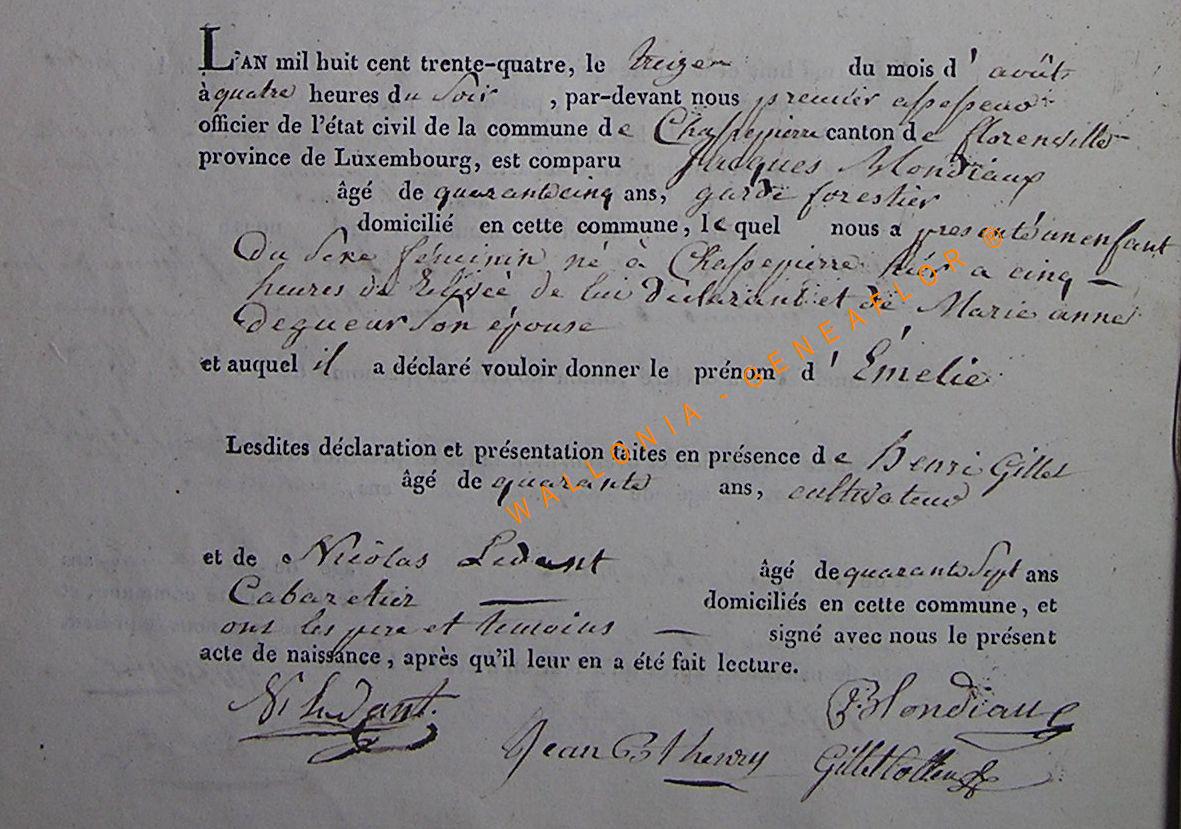 L'AN mil huit cent trente-quatre, le treize du mois d' août
à quatre heures du soir , par-devant nous premier assesseur
officier de l'état civil de la commune de Chassepierre canton de florenville
province de Luxembourg, est comparu Jacques Mondiaux
âgé de quarantecinq ans, garde forestier
domicilié en cette commune, lequel nous a presenté un enfant
du sexe féminin né à Chassepierre hier a cinq
heures de de lui déclarant et de Marie anne
degueur son épouse
et auquel il a déclaré vouloir donner le prénom d' Émelie
Lesdites déclaration et présentation faites en présence de Henri Gillet
âgé de quarante ans, cultivateur
et de Nicolas Ludant âgé de quarante sept ans
Cabaretier domiciliés en cette commune, et
ont les pere et temoins signé avec nous le présent
acte de naissance, après qu'il leur en a été fait lecture.
N Ludant. Mondiaux
Jean Bt henry Gillet
WALLONIA - GENEAFLOR ®